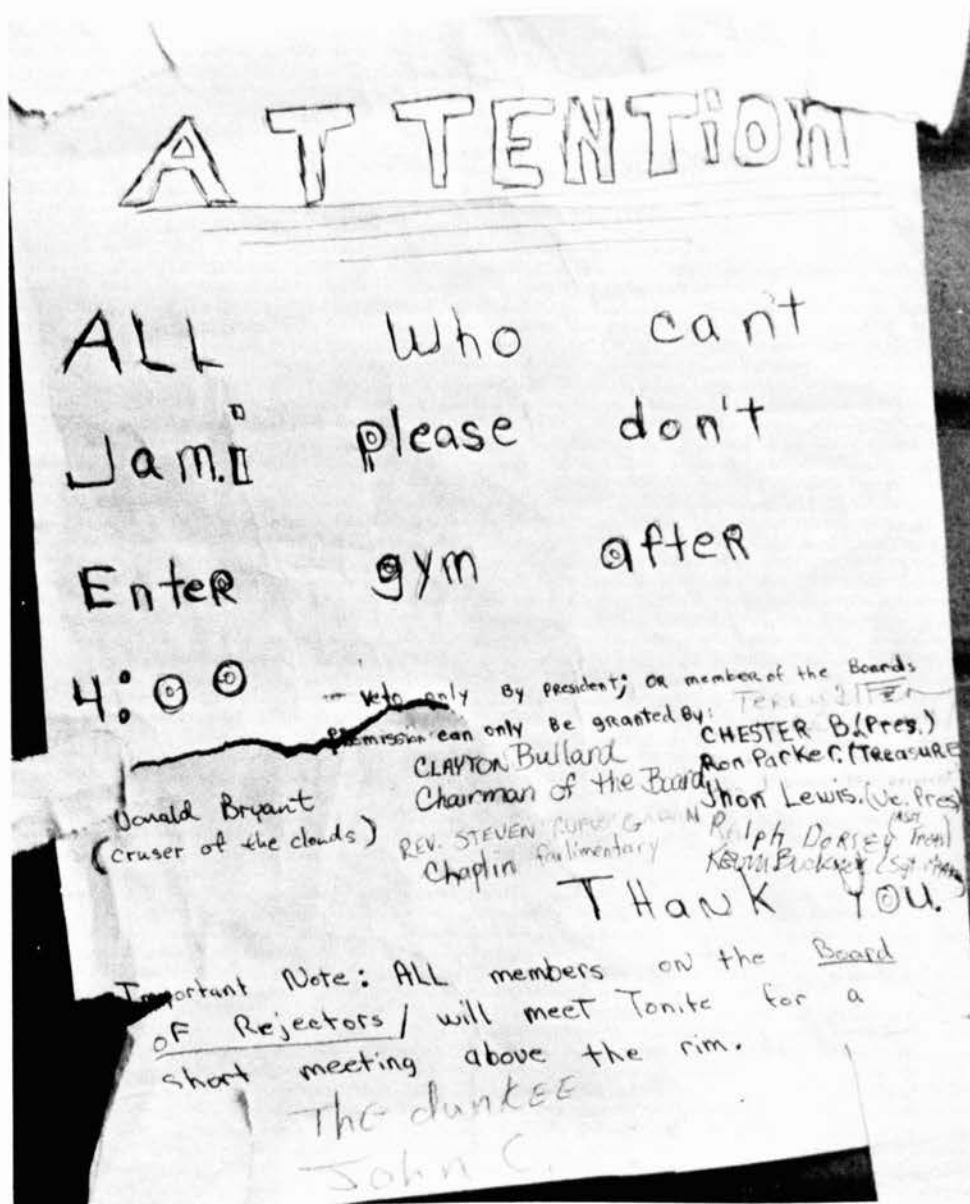 ATTENTion
ALL Who can't
Jam! please don't
EnteR gym afteR
4:00 - Veto only By president; OR member of the Boards
Permission can only Be granted By:
CLAYTON Bulland
Chairman of the Board
CHESTER B. (Pres.)
Ron Parker. (TREASURE
Jhon Lewis. (Vc. Pres)
Ralph DORSEY
Kevin Buckner
Donald Bryant
(cruser of the clouds)
REV. STEVEN
Chaplin Parlimentary
THaNK YOU.
Important Note: ALL members on the Board
oF Rejectors / will meet Tonite for a
short meeting above the rim.
The dunkEE
John C.